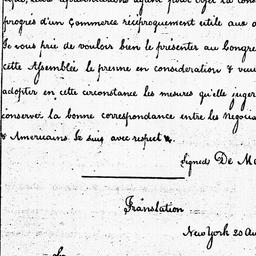 progrès d'un Commerce réciproquement utile aux
Je vous prie de vouloir bien le présenter au Congre
cette Assemblée le prenne en consideration & veu
adopter en cette circonstance les mesures qu'elle juger
conserver la bonne correspondance entre les negocia
& Americains. Je suis avec respect &.
Signed De M
Translation
New York 20 Au